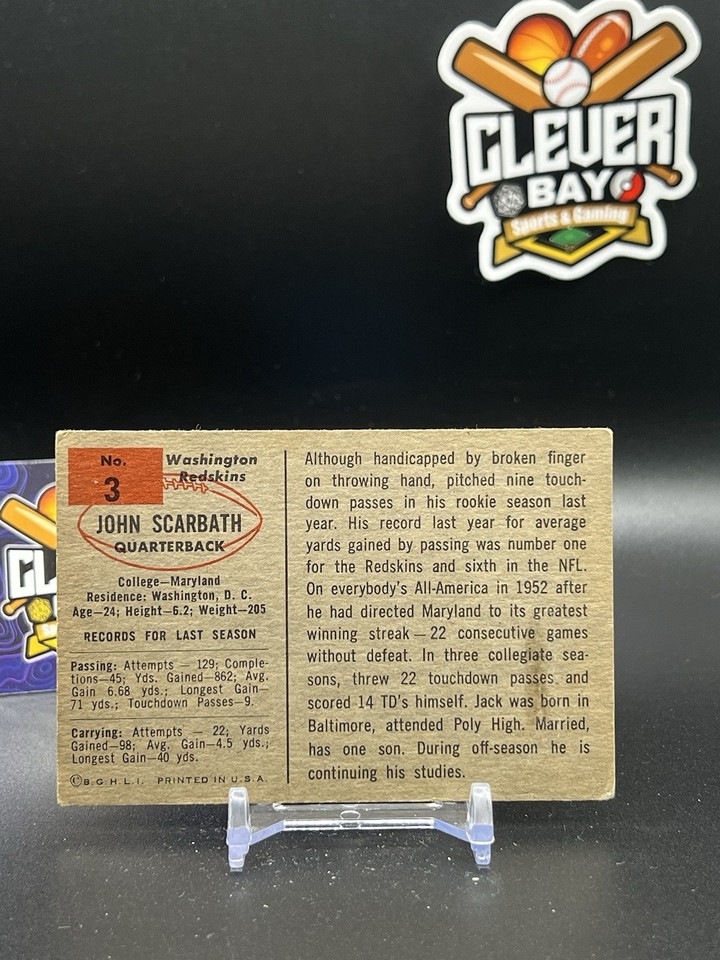 CLEVER
BAY
Sports & Gaming
No.
3
Washington
Redskins
JOHN SCARBATH
QUARTERBACK
College—Maryland
Residence: Washington, D. C.
Age—24; Height—6.2; Weight—205
RECORDS FOR LAST SEASON
Passing: Attempts — 129; Comple-
tions—45; Yds. Gained—862; Avg.
Gain 6.68 yds.; Longest Gain—
71 yds.; Touchdown Passes—9.
Carrying: Attempts — 22; Yards
Gained—98; Avg. Gain—4.5 yds.;
Longest Gain—40 yds.
©B.G.H.L.I. PRINTED IN U.S.A.
Although handicapped by broken finger
on throwing hand, pitched nine touch-
down passes in his rookie season last
year. His record last year for average
yards gained by passing was number one
for the Redskins and sixth in the NFL.
On everybody's All-America in 1952 after
he had directed Maryland to its greatest
winning streak — 22 consecutive games
without defeat. In three collegiate sea-
sons, threw 22 touchdown passes and
scored 14 TD's himself. Jack was born in
Baltimore, attended Poly High. Married,
has one son. During off-season he is
continuing his studies.